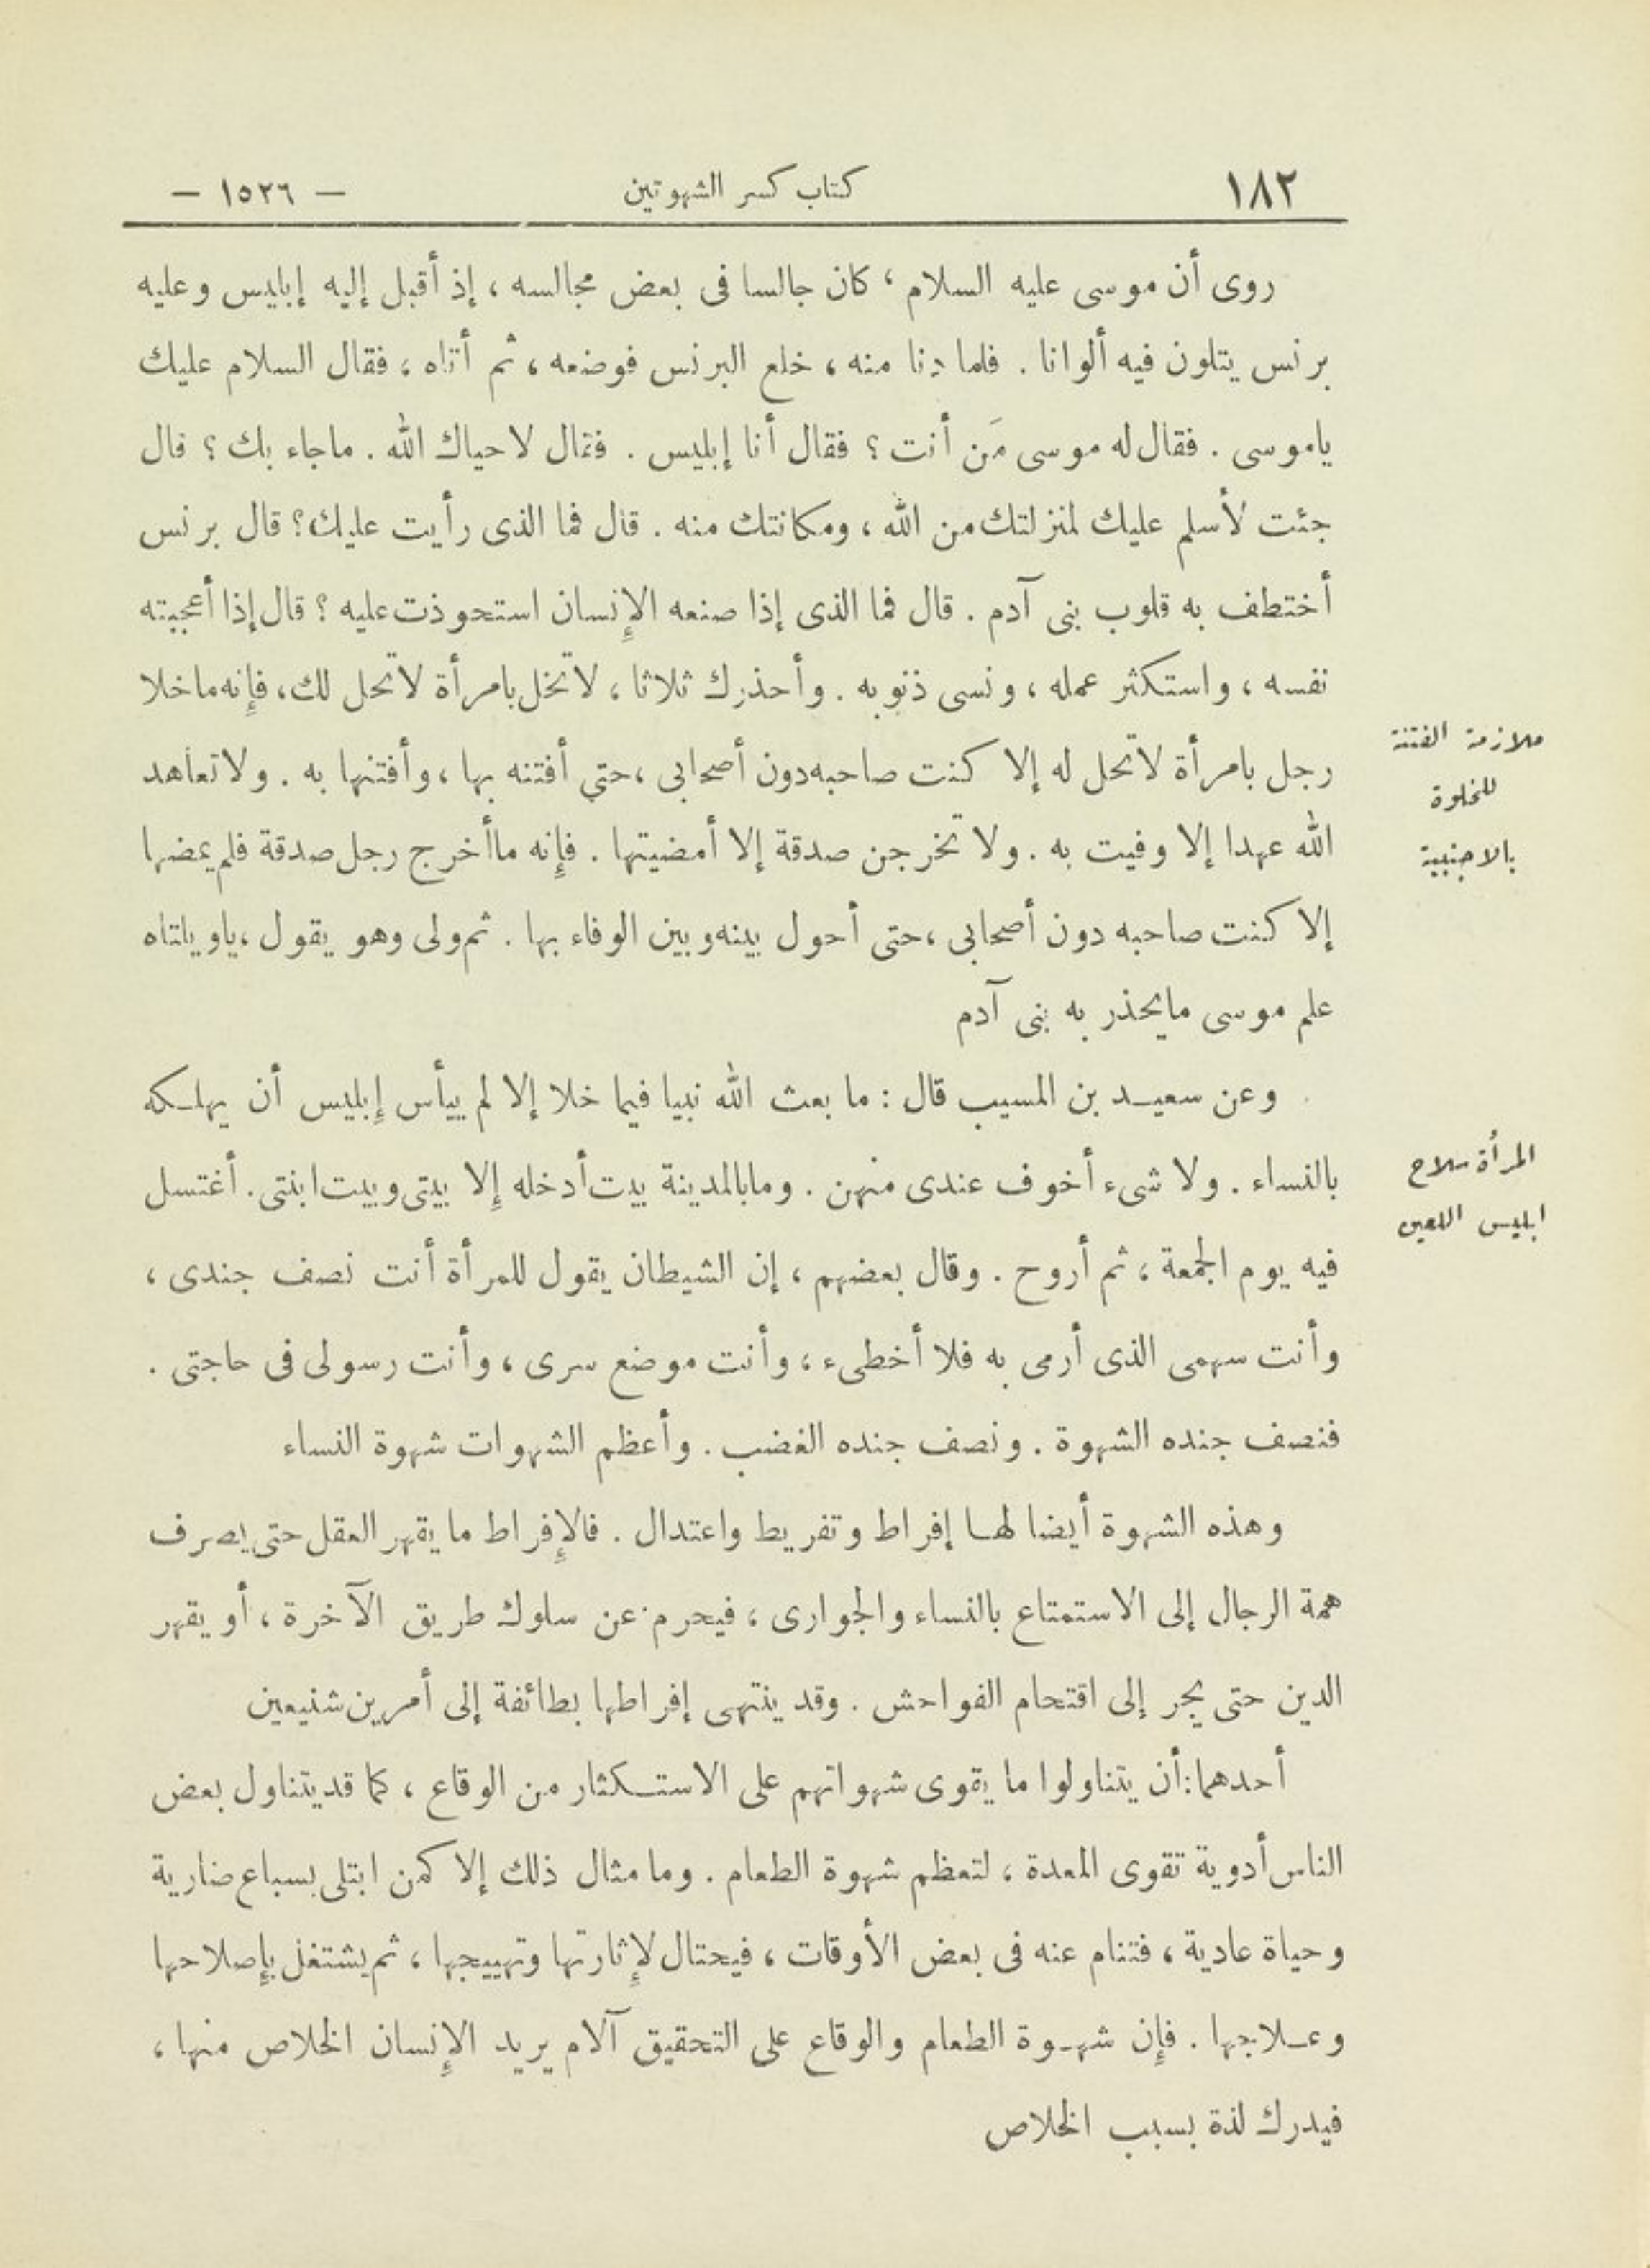 ١٨٢ كتاب كسر الشهوتين — ١٥٢٦ —
روى أن موسى عليه السلام ، كان جالسا فى بعض مجالسه ، إذ أقبل إليه إبليس وعليه
برنس يتلون فيه ألوانا . فلما دنا منه ، خلع البرنس فوضعه ، ثم أتاه ، فقال السلام عليك
ياموسى . فقال له موسى مَن أنت ؟ فقال أنا إبليس . فقال لا حياك الله . ماجاء بك ؟ قال
جئت لأسلم عليك لمنزلتك من الله ، ومكانتك منه . قال فما الذى رأيت عليك؟ قال برنس
أختطف به قلوب بنى آدم . قال فما الذى إذا صنعه الإنسان استحوذت عليه ؟ قال إذا أعجبته
نفسه ، واستكثر عمله ، ونسى ذنوبه . وأحذرك ثلاثا ، لاتخل بامرأة لاتحل لك ، فإنه ماخلا
رجل بامرأة لاتحل له إلا كنت صاحبه دون أصحابى ، حتى أفتنه بها ، وأفتنها به . ولاتعاهد
الله عهدا إلا وفيت به . ولا تخرجن صدقة إلا أمضيتها . فإنه ماأخرج رجل صدقة فلم يمضها
إلا كنت صاحبه دون أصحابى ، حتى أحول بينه وبين الوفاء بها . ثم ولى وهو يقول ، ياويلتاه
علم موسى مايحذر به بنى آدم
وعن سعيد بن المسيب قال : ما بعث الله نبيا فيما خلا إلا لم ييأس إبليس أن يهلكه
بالنساء . ولا شىء أخوف عندى منهن . ومابالمدينة بيت أدخله إلا بيتى وبيت ابنتى . أغتسل
فيه يوم الجمعة ، ثم أروح . وقال بعضهم ، إن الشيطان يقول للمرأة أنت نصف جندى ،
وأنت سهمى الذى أرمى به فلا أخطىء ، وأنت موضع سرى ، وأنت رسولى فى حاجتى .
فنصف جنده الشهوة . ونصف جنده الغضب . وأعظم الشهوات شهوة النساء
وهذه الشهوة أيضا لها إفراط وتفريط واعتدال . فالإفراط ما يقهر العقل حتى يصرف
همة الرجال إلى الاستمتاع بالنساء والجوارى ، فيحرم عن سلوك طريق الآخرة ، أو يقهر
الدين حتى يجر إلى اقتحام الفواحش . وقد ينتهى إفراطها بطائفة إلى أمرين شنيعين
أحدهما : أن يتناولوا ما يقوى شهواتهم على الاستكثار من الوقاع ، كما قد يتناول بعض
الناس أدوية تقوى المعدة ، لتعظم شهوة الطعام . وما مثال ذلك إلا كمن ابتلى بسباع ضارية
وحياة عادية ، فتنام عنه فى بعض الأوقات ، فيحتال لإثارتها وتهييجها ، ثم يشتغل بإصلاحها
وعلاجها . فإن شهوة الطعام والوقاع على التحقيق آلام يريد الإنسان الخلاص منها ،
فيدرك لذة بسبب الخلاص
ملازمة الفتنة
للخلوة
بالاجنبية
المرأة سلاح
ابليس اللعين